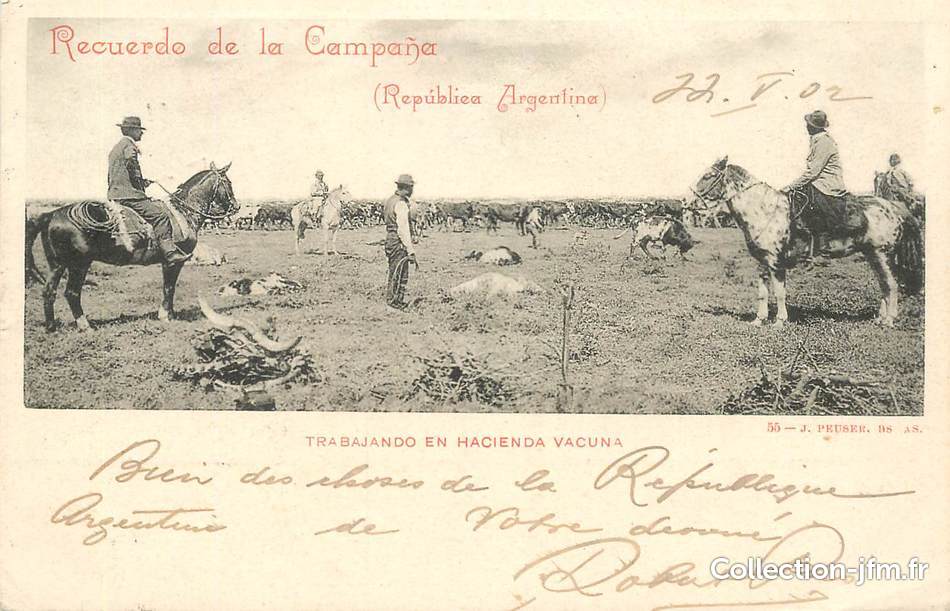 Recuerdo de la Campaña
(República Argentina)
22. V. 02
55 — J. PEUSER, BS AS.
TRABAJANDO EN HACIENDA VACUNA
Bien des choses de la République
Argentine de Votre devoué
Collection-jfm.fr